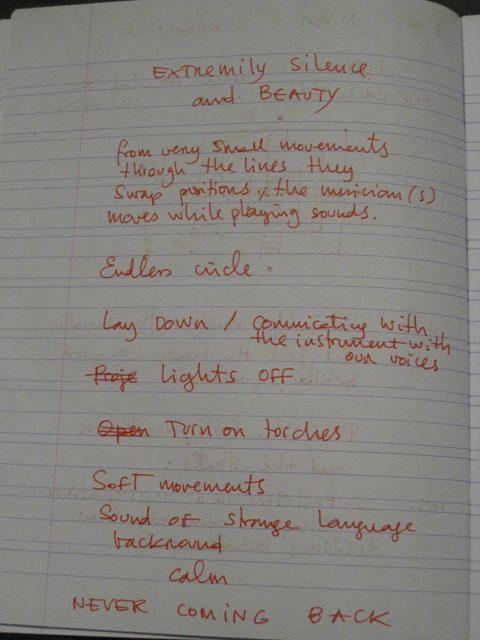 EXTREMILY SILENCE
and BEAUTY
from very small movements
through the lines they
swap positions, the musician(s)
moves while playing sounds.
Endless circle.
LAY DOWN / comunicating with
the instrument with
our voices
Proje Lights OFF
Open Turn on torches
SOFT movements
Sound of strange language
backround
calm
NEVER COMING BACK